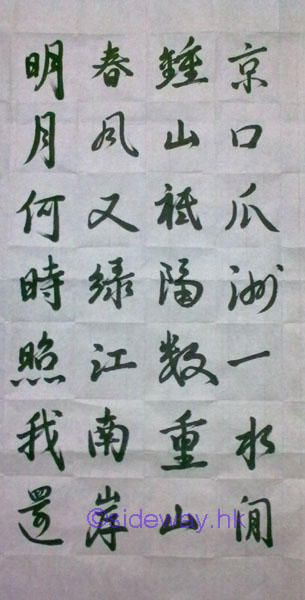 京口瓜洲一水間
鍾山祗隔數重山
春風又綠江南岸
明月何時照我還
©sideway.hk